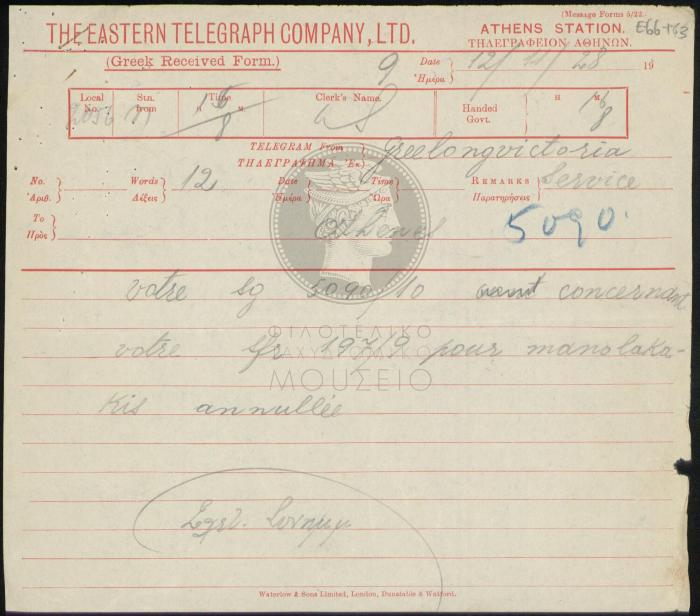 (Message Forms 5/22.)
E66+63
THE EASTERN TELEGRAPH COMPANY, LTD.
ATHENS STATION.
ΤΗΛΕΓΡΑΦΕΙΟΝ ΑΘΗΝΩΝ.
(Greek Received Form.)
9 Date Ἡμέρα 12/11/28 19
Local No. Stn. from Time H. M. Clerk's Name. Handed Govt. H M
15/8 16/8
TELEGRAM From Geelongvictoria
ΤΗΛΕΓΡΑΦΗΜΑ Ἐκ
No. Words 12 Date Time REMARKS Service
Ἀριθ. Λέξεις Ἡμέρα Ὥρα Παρατηρήσεις
To Athenes 5090.
Πρὸς
votre sg 5090/10 concernant
votre tfr 197/9 pour manolaka-
kis annullée
ΦΙΛΟΤΕΛΙΚΟ
ΤΑΧΥΔΡΟΜΙΚΟ
ΜΟΥΣΕΙΟ
Waterlow & Sons Limited, London, Dunstable & Watford.